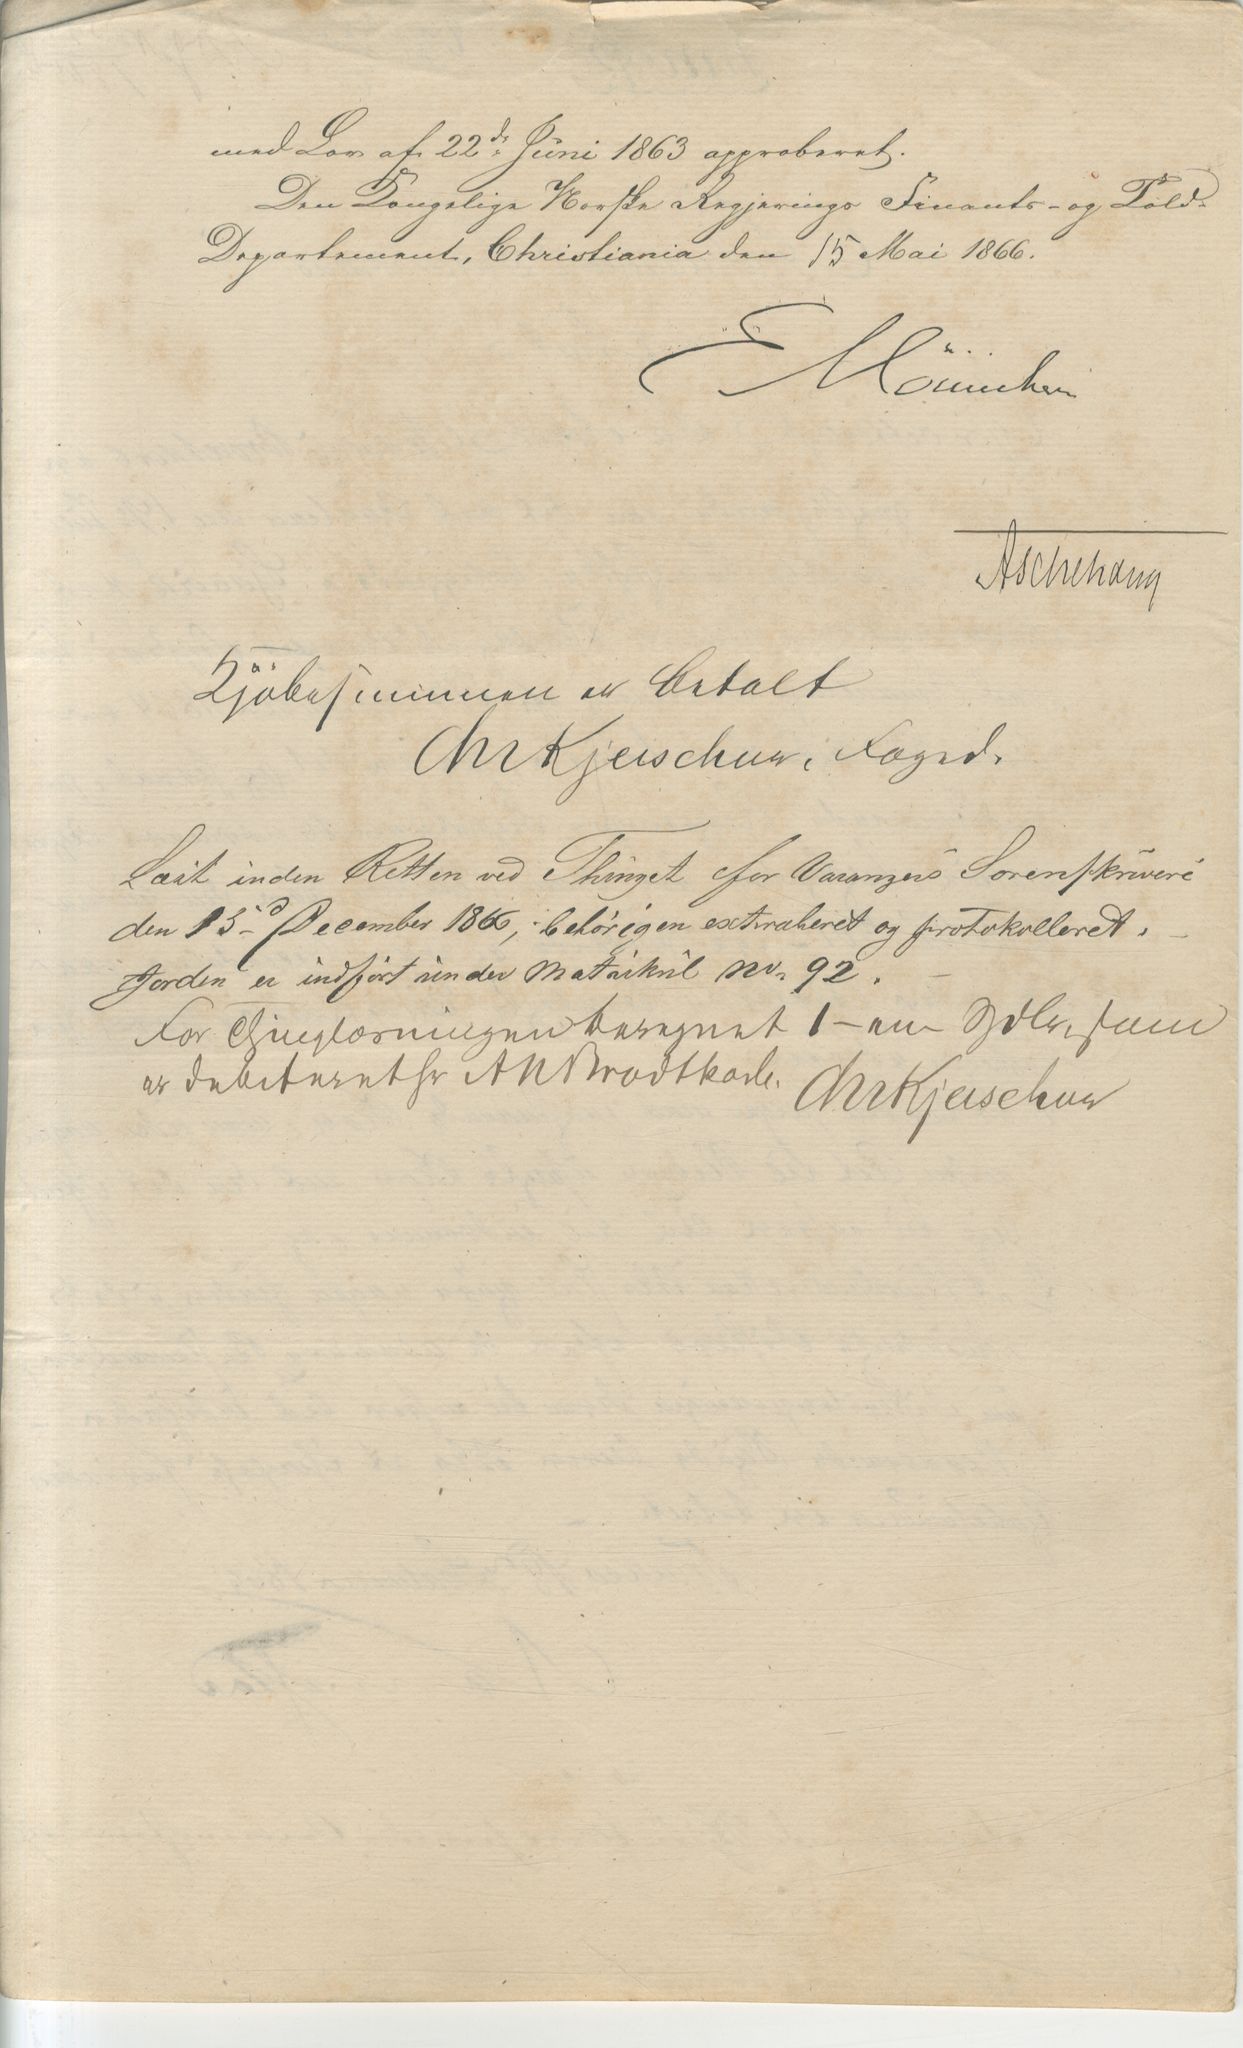 med Lov af 22de Juni 1863 approberet.
Den Kongelige Norske Regjerings Finants- og Told-
Departement, Christiania den 15 Mai 1866.
E Mönnichen
Aschehoug
Kjöbesummen er betalt
Chr Kjerschow, Foged.
Læst inden Retten ved Thinget for Varangers Sorenskriveri
den 15d December 1866, behörigen extraheret og protokolleret. -
Jorden er indfört under Matrikul No 92. -
For Thinglæsningen beregnet 1 - en Spdlr, som
er debiteret Hr A N Brodtkorb. Chr Kjerschow